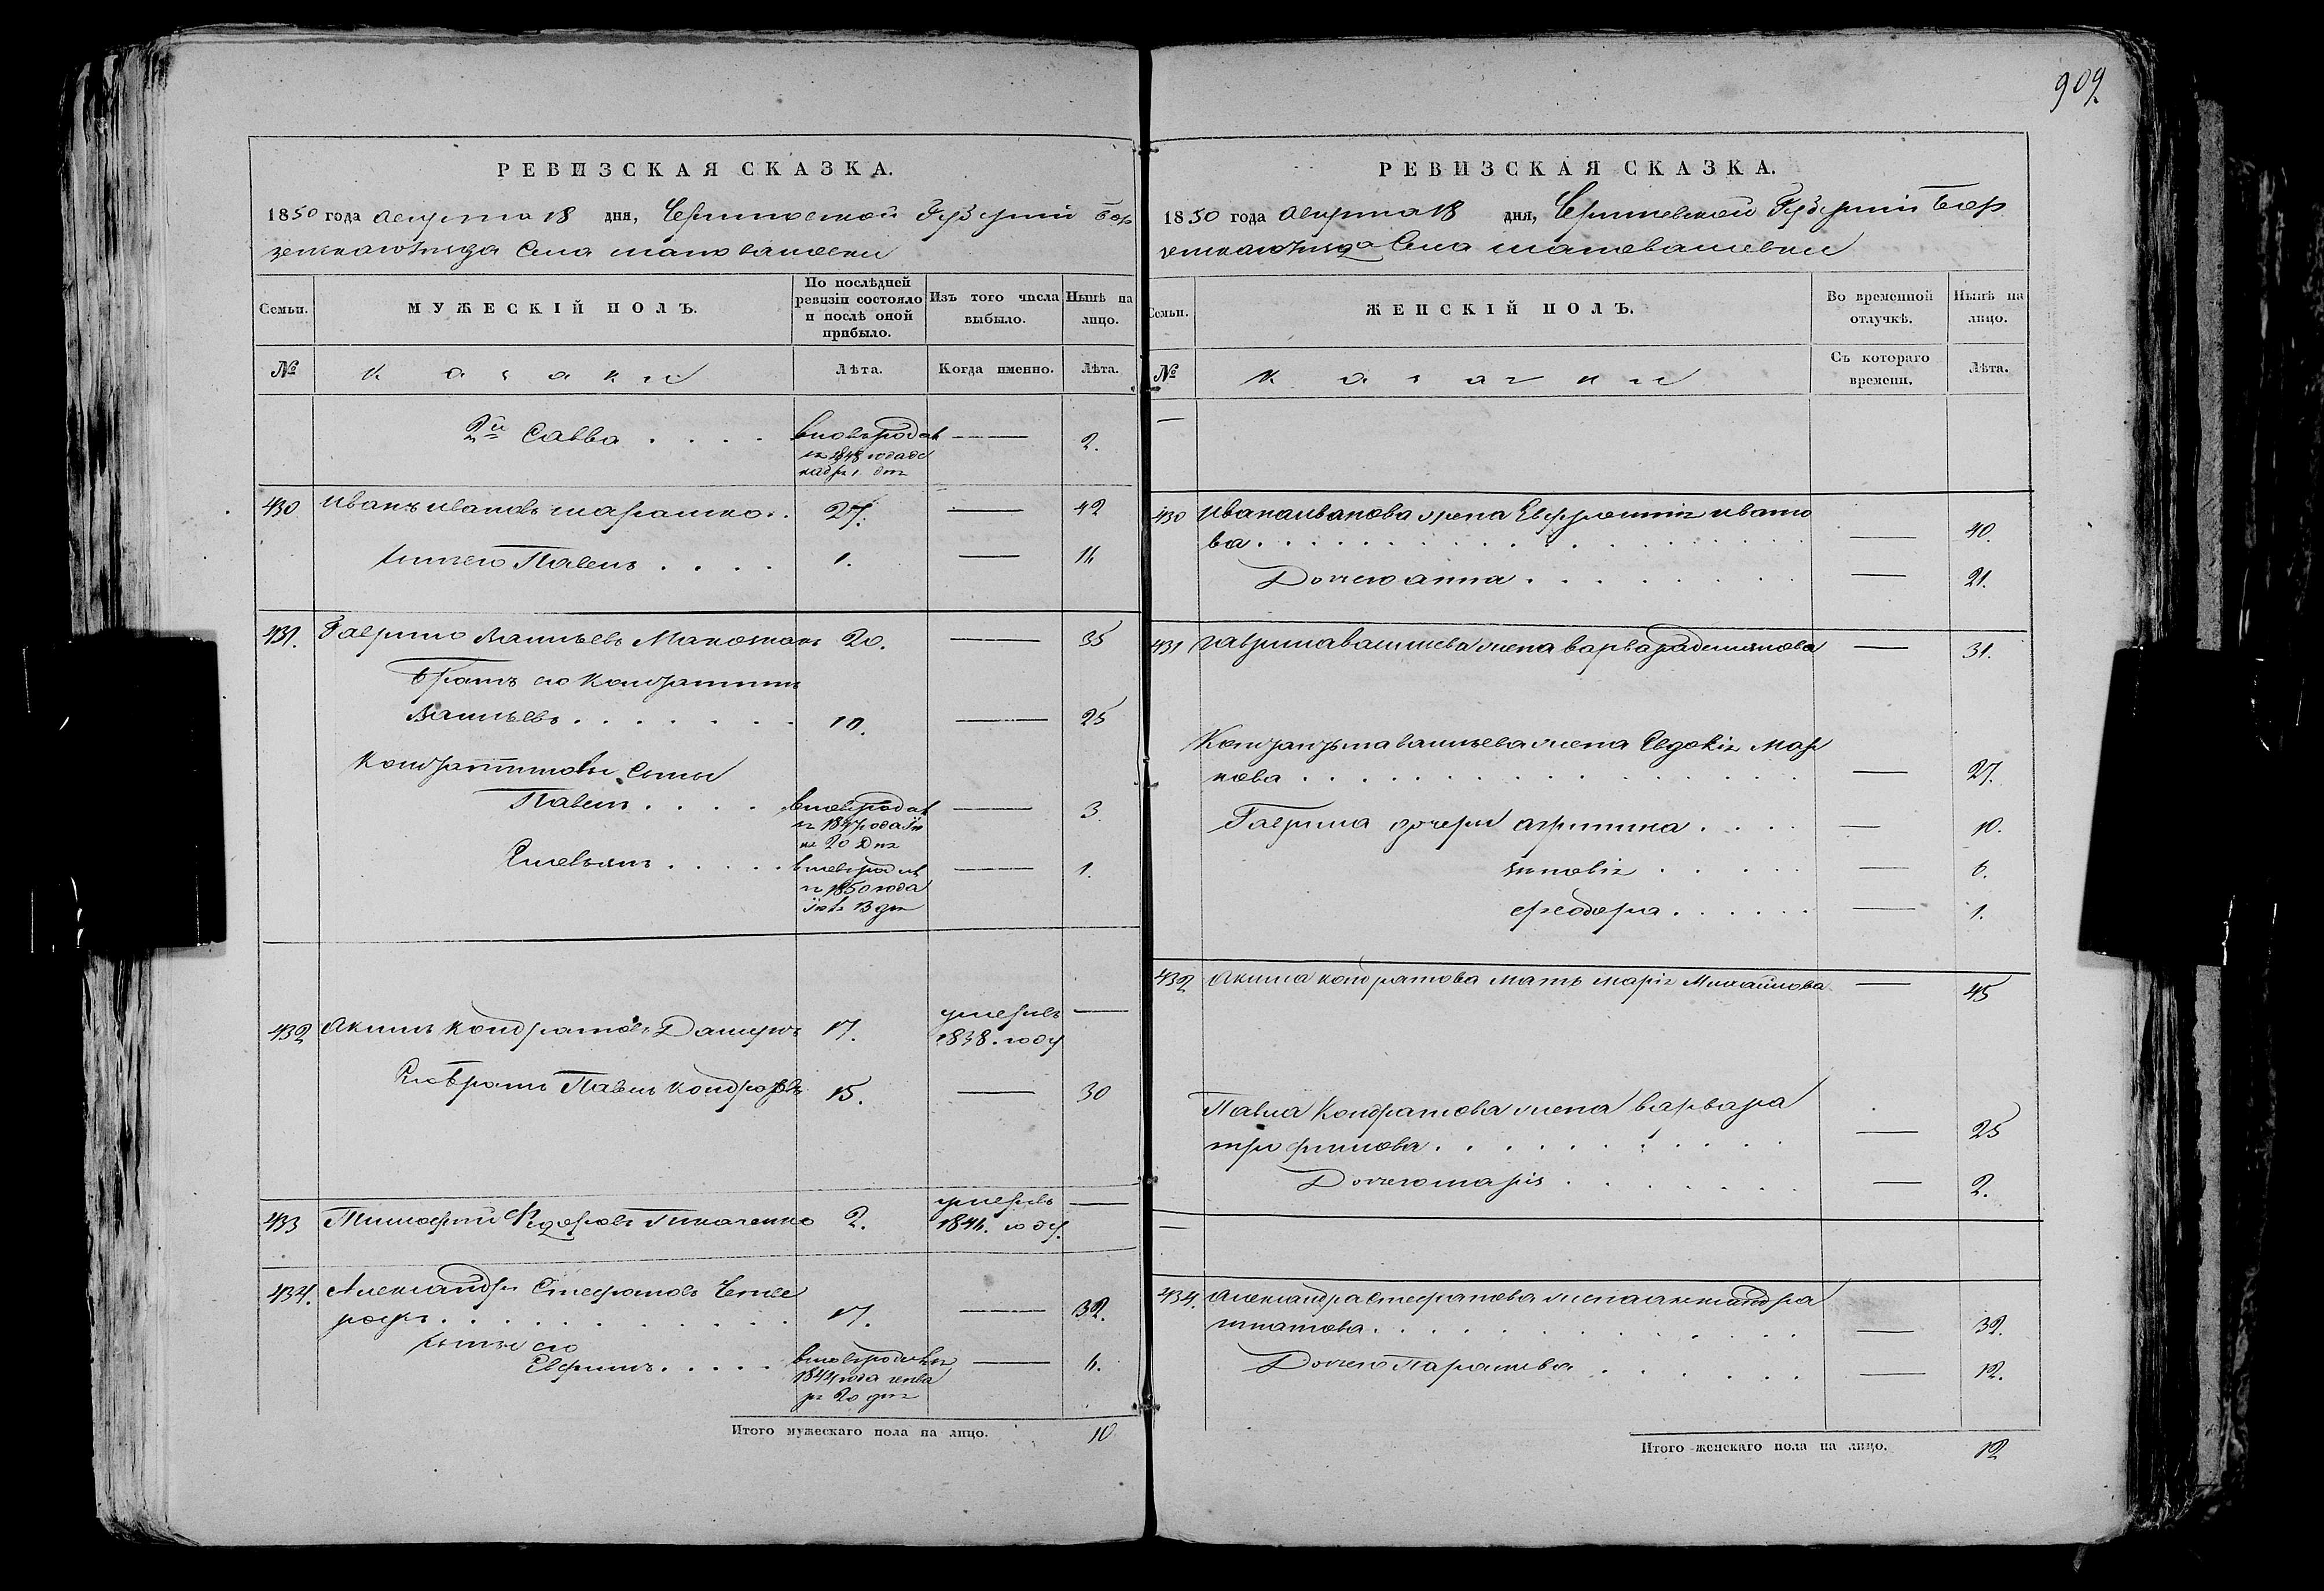 909.
РЕВИЗСКАЯ СКАЗКА.
1850 года августа 18 дня, Черниговской Губерніи Бор
зенскаго уезда Села
Семьи.
МУЖЕСКІЙ ПОЛЪ.
По послѣдней ревизіи состояло и послѣ оной прибыло.
Изъ того числа выбыло.
Нынѣ на лицо.
№
казаки
Лѣта.
Когда именно.
Лѣта.
2й Савва . . . . вновьрожд — 2.
1848 года де
кабр 1 дня
430 Иванъ Ивановъ 27. — 42
Павелъ . . . . 1. — 16
431. Гаврило Васильевъ 20. — 35
Братъ его Кондратий
Васильевъ . . . . . . . 10. — 25
Кондратиовы сыны
Павелъ . . . . — 3
1847 года
20 дня
Емельянъ . . . . . — 1.
1850 года
13 дня
432 Акимъ Кондратовъ 17. умеръ въ —
1838. году
Его братъ Павелъ Кондратовъ 15. — 30
433 Тимофей Федоровъ Ткаченко 2. умеръ въ —
1846. году.
434. Александръ Стефановъ
17. — 32.
его
Евфимъ . . . . . — 6.
1844 года генва
ря 20 дня
Итого мужескаго пола на лицо. 10
РЕВИЗСКАЯ СКАЗКА.
1850 года августа 18 дня, Черниговской Губерніи Бор
зенскаго уезда Села
Семьи.
ЖЕНСКІЙ ПОЛЪ.
Во временной отлучкѣ.
Нынѣ на лицо.
№
казачки
Съ котораго времени.
Лѣта.
—
430 Ивана Иванова жена Евфросинія Ивано
ва . . . . . . . . . . — 40.
Дочь его Анна . . . . . . . — 21.
431 Гаврила Васильева жена Варвара Демянова — 31.
Кондратья Васильева жена Евдокія Мар
кова . . . . . . . . . . — 27.
Гаврила дочери Агрипина . . . . — 10.
Зиновія . . . . . — 6.
Феодора . . . . . . — 1.
432 Акима Кондратова мать Марія Михайлова — 45
Павла Кондратова жена Варвара
Трофимова . . . . . . . . . — 25
Дочь его Марія . . . . . . . — 2.
—
434. Александра Стефанова жена Александра
Игнатова . . . . . . . . . — 32.
Дочь его Параскева . . . . . . — 12.
Итого женскаго пола на лицо. 12